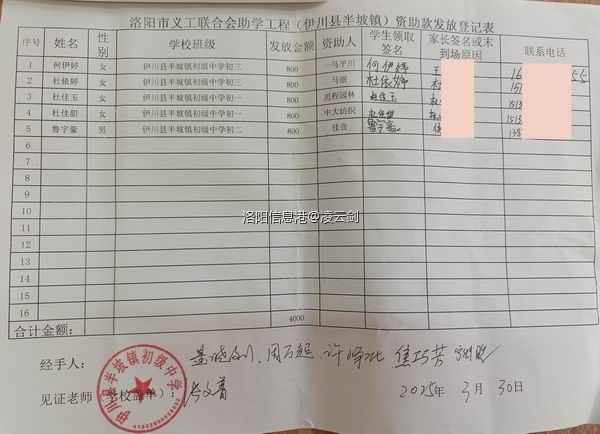 洛阳市义工联合会助学工程（伊川县半坡镇）资助款发放登记表
序号 姓名 性别 学校班级 发放金额 资助人 学生领取签名 家长签名或未到场原因 联系电话
1 何伊婷 女 伊川县半坡镇初级中学初三 800 一马平川 何伊婷 王 16 55
2 杜依婷 女 伊川县半坡镇初级中学初三 800 马丽 杜依婷 杜 151
3 杜佳玉 女 伊川县半坡镇初级中学初一 800 思程园林 杜佳玉 杜 1513
4 杜佳甜 女 伊川县半坡镇初级中学初一 800 中大纺织 杜佳甜 杜 1513
5 鲁宇豪 男 伊川县半坡镇初级中学初二 800 佳音 鲁宇豪 138
6
7
8
9
10
11
12
13
14
15
16 4000
合计金额：
洛阳信息港@凌云剑
经手人： 周石超 焦巧芳
见证老师（学校盖章）： 2025年 3月 30日
伊川县半坡镇初级中学